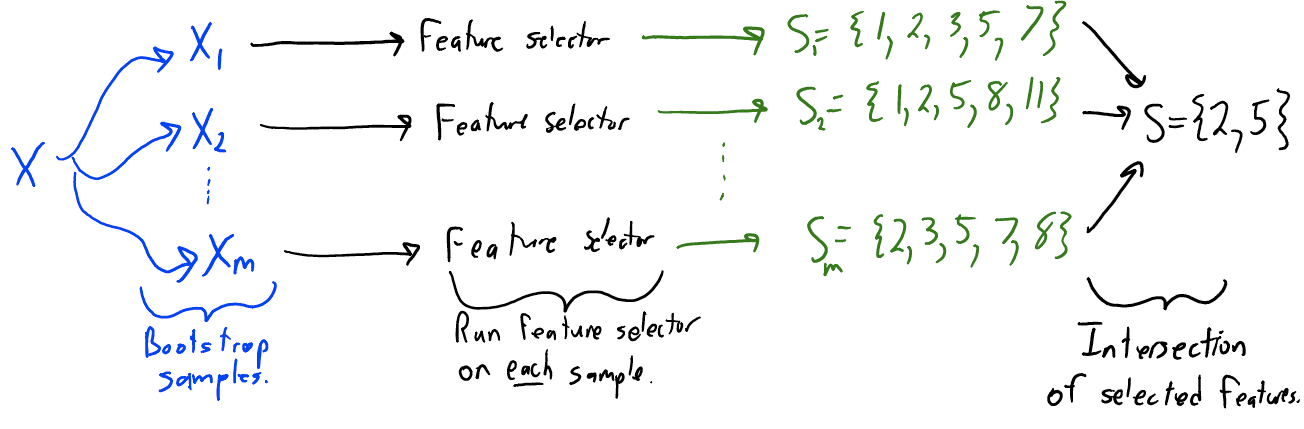 X
X₁ → Feature selector → S₁ = {1, 2, 3, 5, 7}
X₂ → Feature selector → S₂ = {1, 2, 5, 8, 11}
S={2, 5}
Xₘ → Feature selector → Sₘ = {2, 3, 5, 7, 8}
Bootstrap
samples.
Run feature selector
on each sample.
Intersection
of selected features.